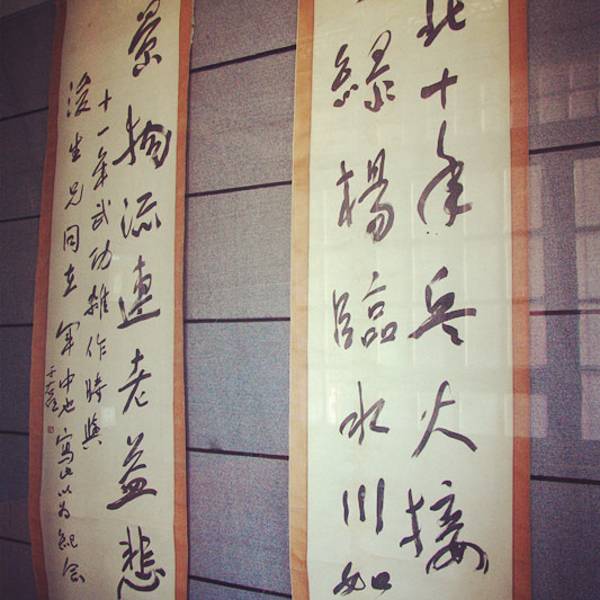 北十年兵火接
綠楊臨水川如
景物流連老益悲
十一年武功雜作時與
浚生兄同在軍中也寫此以為紀念
于右任